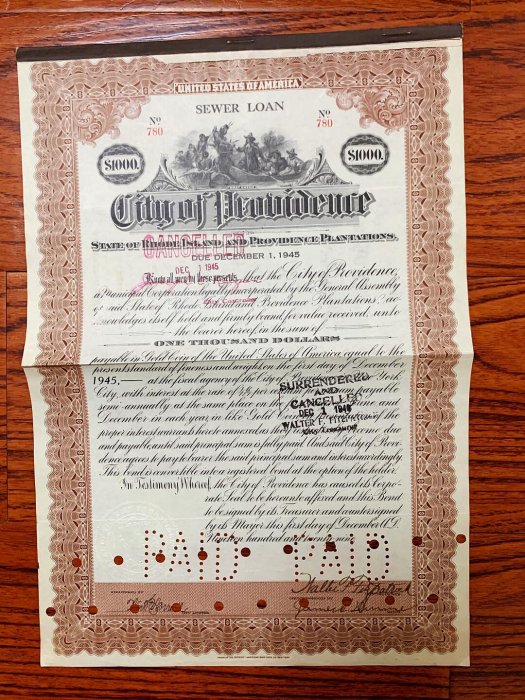 UNITED STATES OF AMERICA
SEWER LOAN
Nº 780
Nº 780
$1000.
$1000.
City of Providence
STATE OF RHODE ISLAND AND PROVIDENCE PLANTATIONS.
CANCELLED
DUE DECEMBER 1, 1945
DEC 1 1945
Know all men by these presents, that the City of Providence,
a Municipal Corporation legally incorporated by the General Assembly
of said State of Rhode Island and Providence Plantations, ac-
knowledges itself held and firmly bound for value received, unto
the bearer hereof in the sum of
ONE THOUSAND DOLLARS
payable in Gold Coin of the United States of America equal to the
present standard of fineness and weight on the first day of December
1945, at the fiscal agency of the City of
City, with interest at the rate of per payable
semi-annually at the same place and
December in each year in like Gold
proper interest warrants hereto annexed, as they due
and payable, until said principal sum is fully paid. And said City of Provi-
dence agrees to pay to bearer the said principal sum and interest accordingly.
This bond is convertible into a registered bond at the option of the holder.
SURRENDERED
AND
CANCELLED
DEC 1
WALTER F. FITZPATRICK
In Testimony Whereof, the City of Providence has caused its Corpo-
rate Seal to be hereunto affixed and this Bond
to be signed by its Treasurer and countersigned
by its Mayor this first day of December A.D.
Nineteen hundred and
PAID PAID